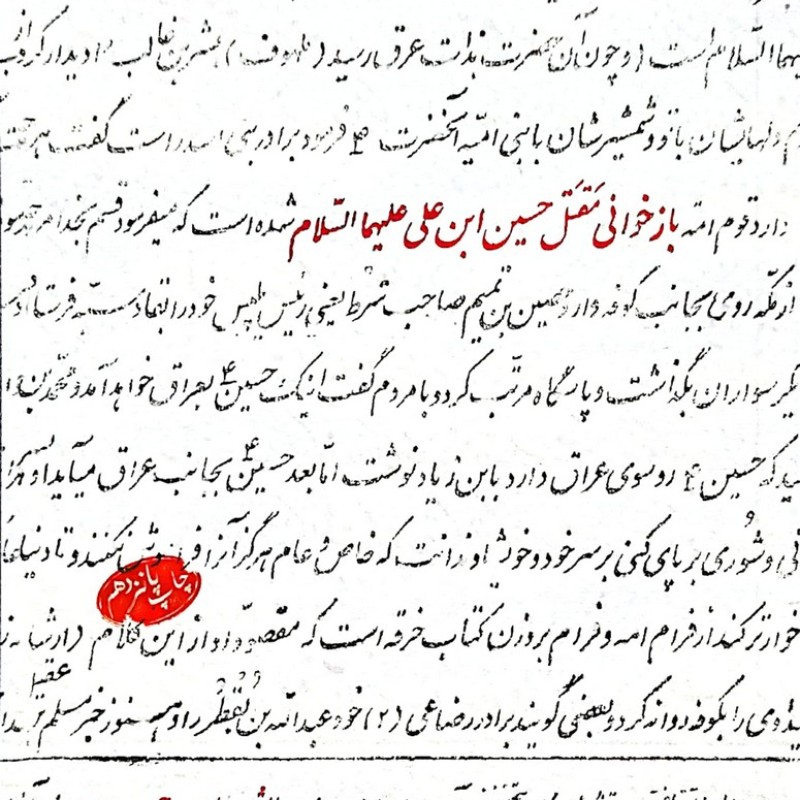 السّلام است (و چون آن حضرت بذات عرق رسید (لهوف) بشر بن غالب را دیدار کرد و از
دلهایشان با تو و شمشیرشان با بنی امیّه آنحضرت ۴ فرمود برادر بنی اسد راست گفت
دارد قوم امّه بازخوانی مَقتَل حسین ابن علی علیهما السّلام شده است که میفرمود قسم بخدا
از مکّه روی بجانب کوفه دارد حصین بن تمیم صاحب شرط یعنی رئیس پلیس خود را بقادسیّه فرستاد
سواران بگذاشت و پاسگاه مرتّب کرد و با مردم گفت اینک حسین ۴ بعراق خواهد آمد و محمّد بن
که حسین ۴ رو سوی عراق دارد بابن زیاد نوشت امّا بعد حسین ۴ بجانب عراق میآید
و شوری بر پای کنی بر سر خود و خویشاوندانت که خاص و عام هرگز آنرا فراموش نکنند و تا دنیا
چاپ پانزدهم
خوارتر کنند از فرام امه و فرام بر وزن کتاب خرقه است که مقصود او از این کلام
را بکوفه روانه کرد و بعضی گویند برادر رضاعی (۲) خود عبدالله بن یُقطُر را و هنوز خبر مسلم بن عقیل